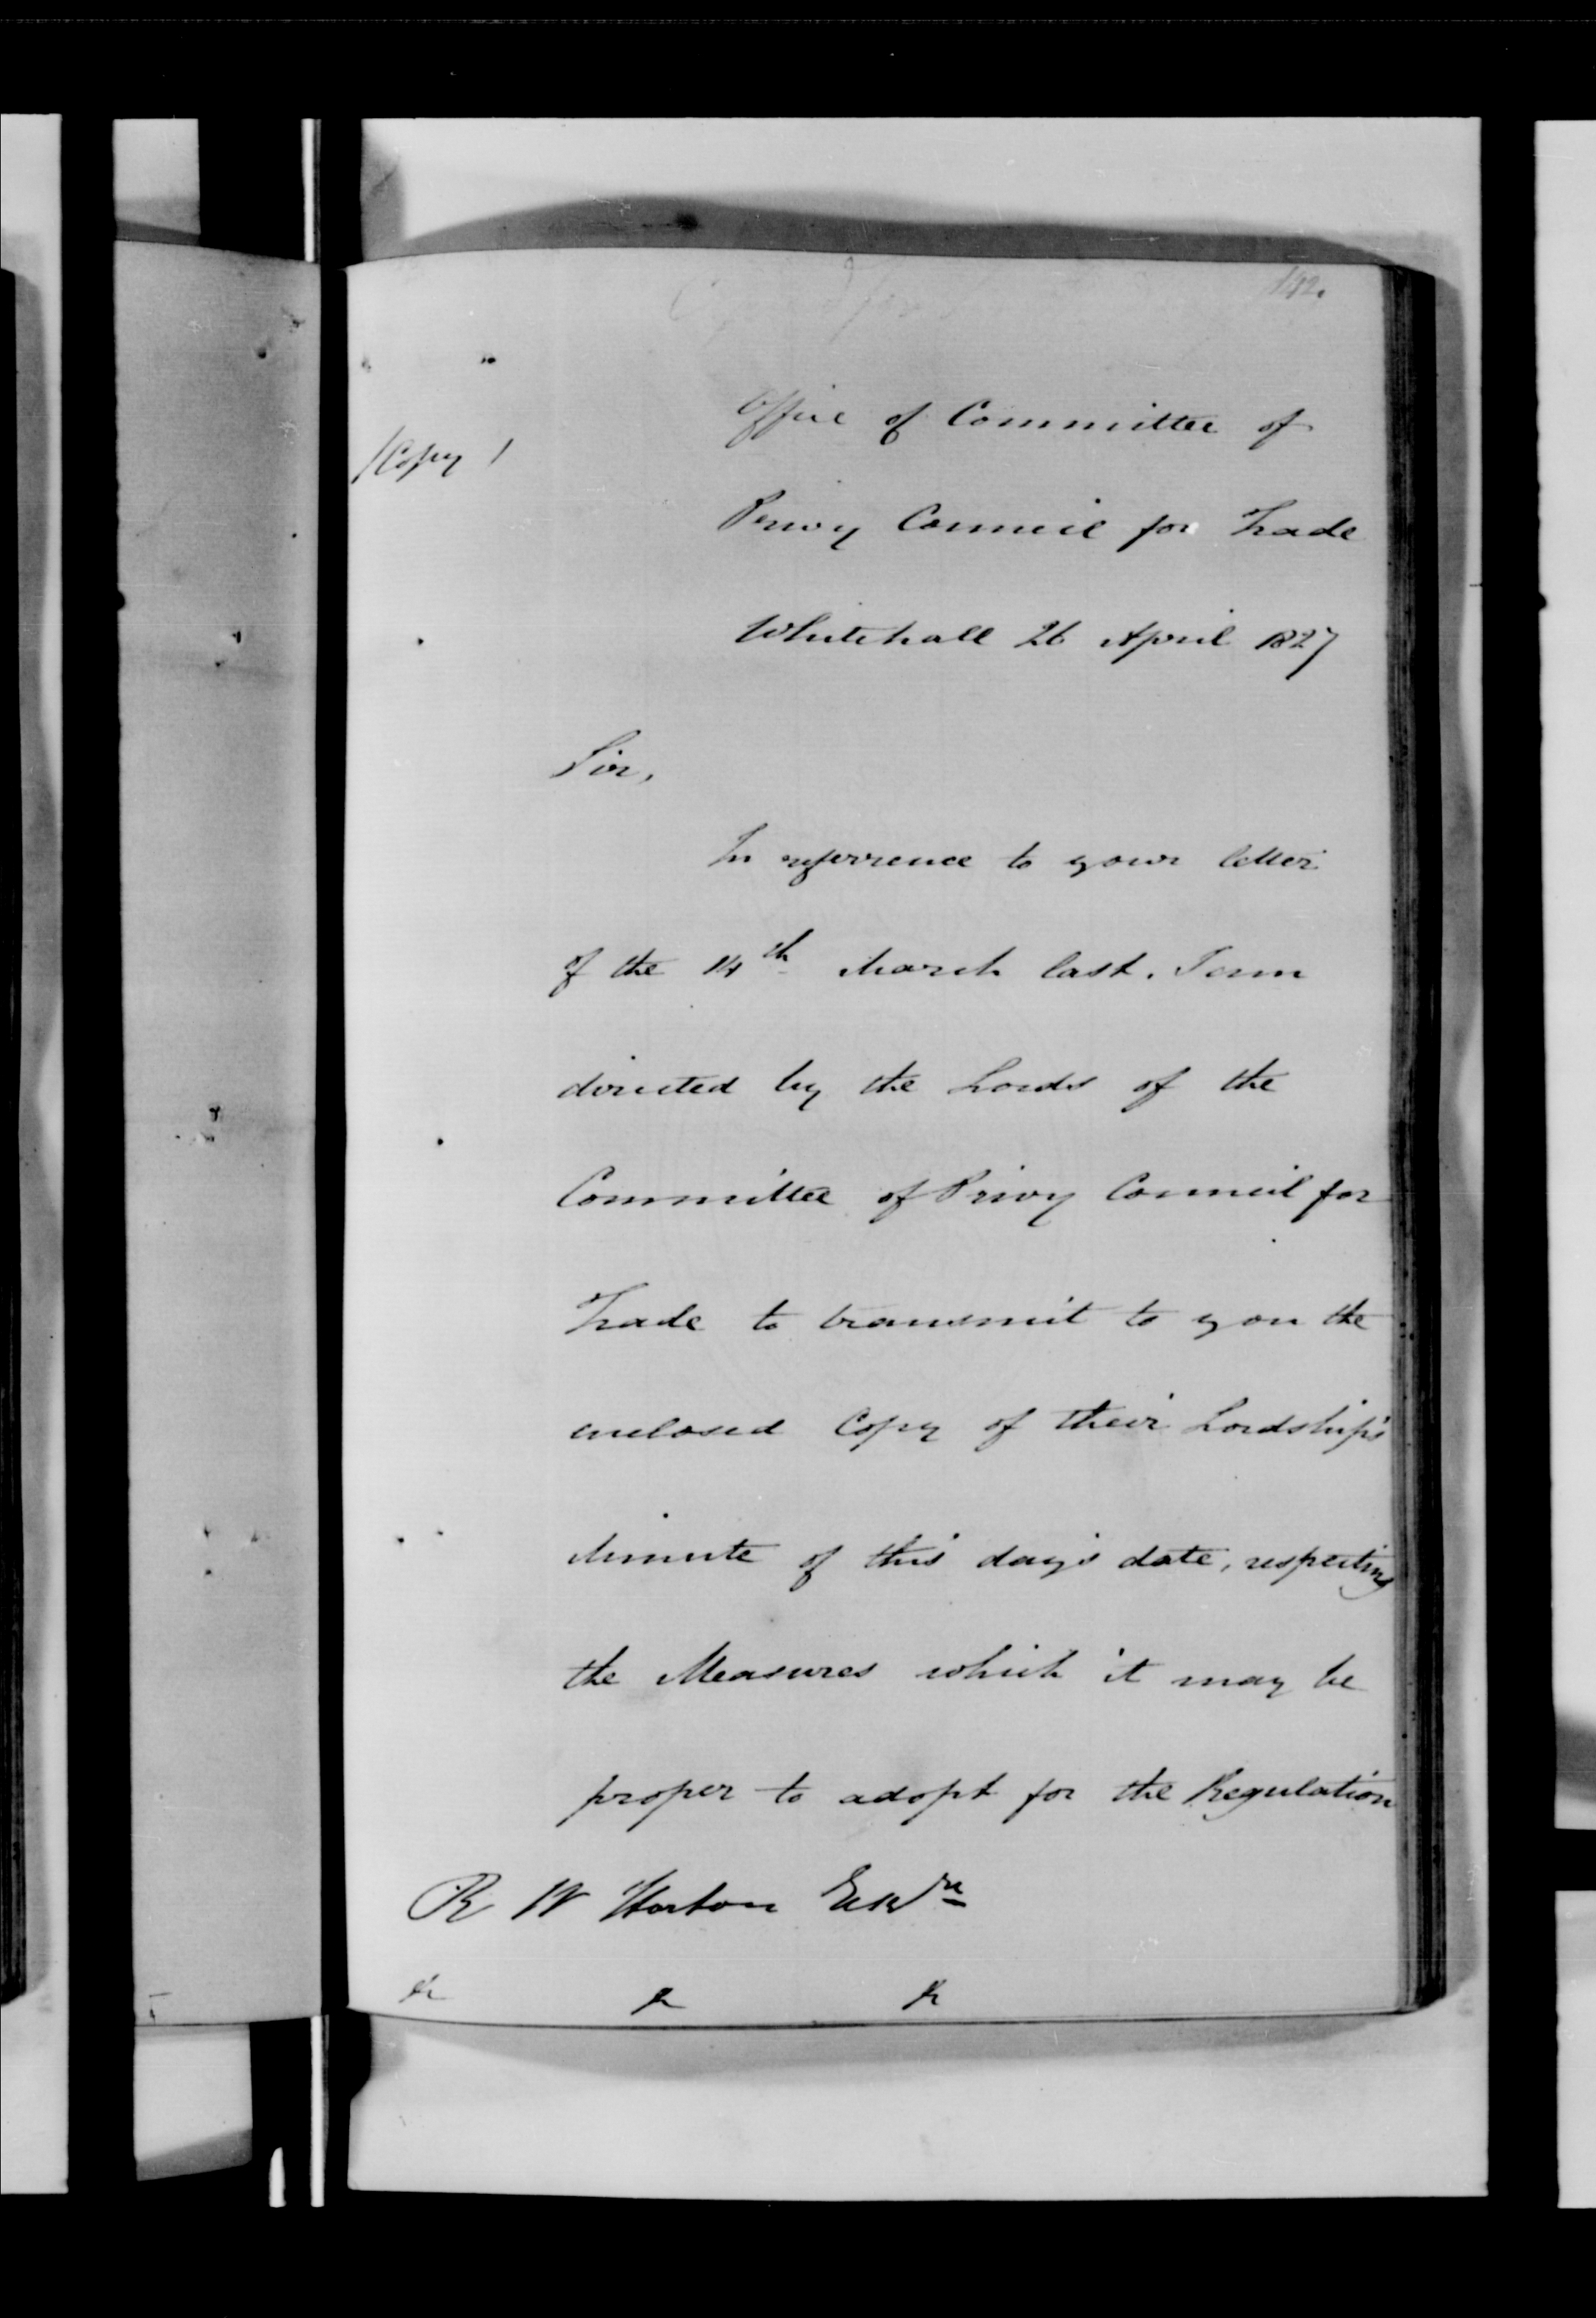 142.
/Copy/
Office of Committee of
Privy Council for Trade
Whitehall 26 April 1827
Sir,
In referrence to your letter
of the 14th March last. I am
directed by the Lords of the
Committee of Privy Council for
Trade to transmit to you the
enclosed Copy of their Lordships
Minute of this day's date, respecting
the Measures which it may be
proper to adopt for the Regulation
R W Horton Esqre
&c &c &c